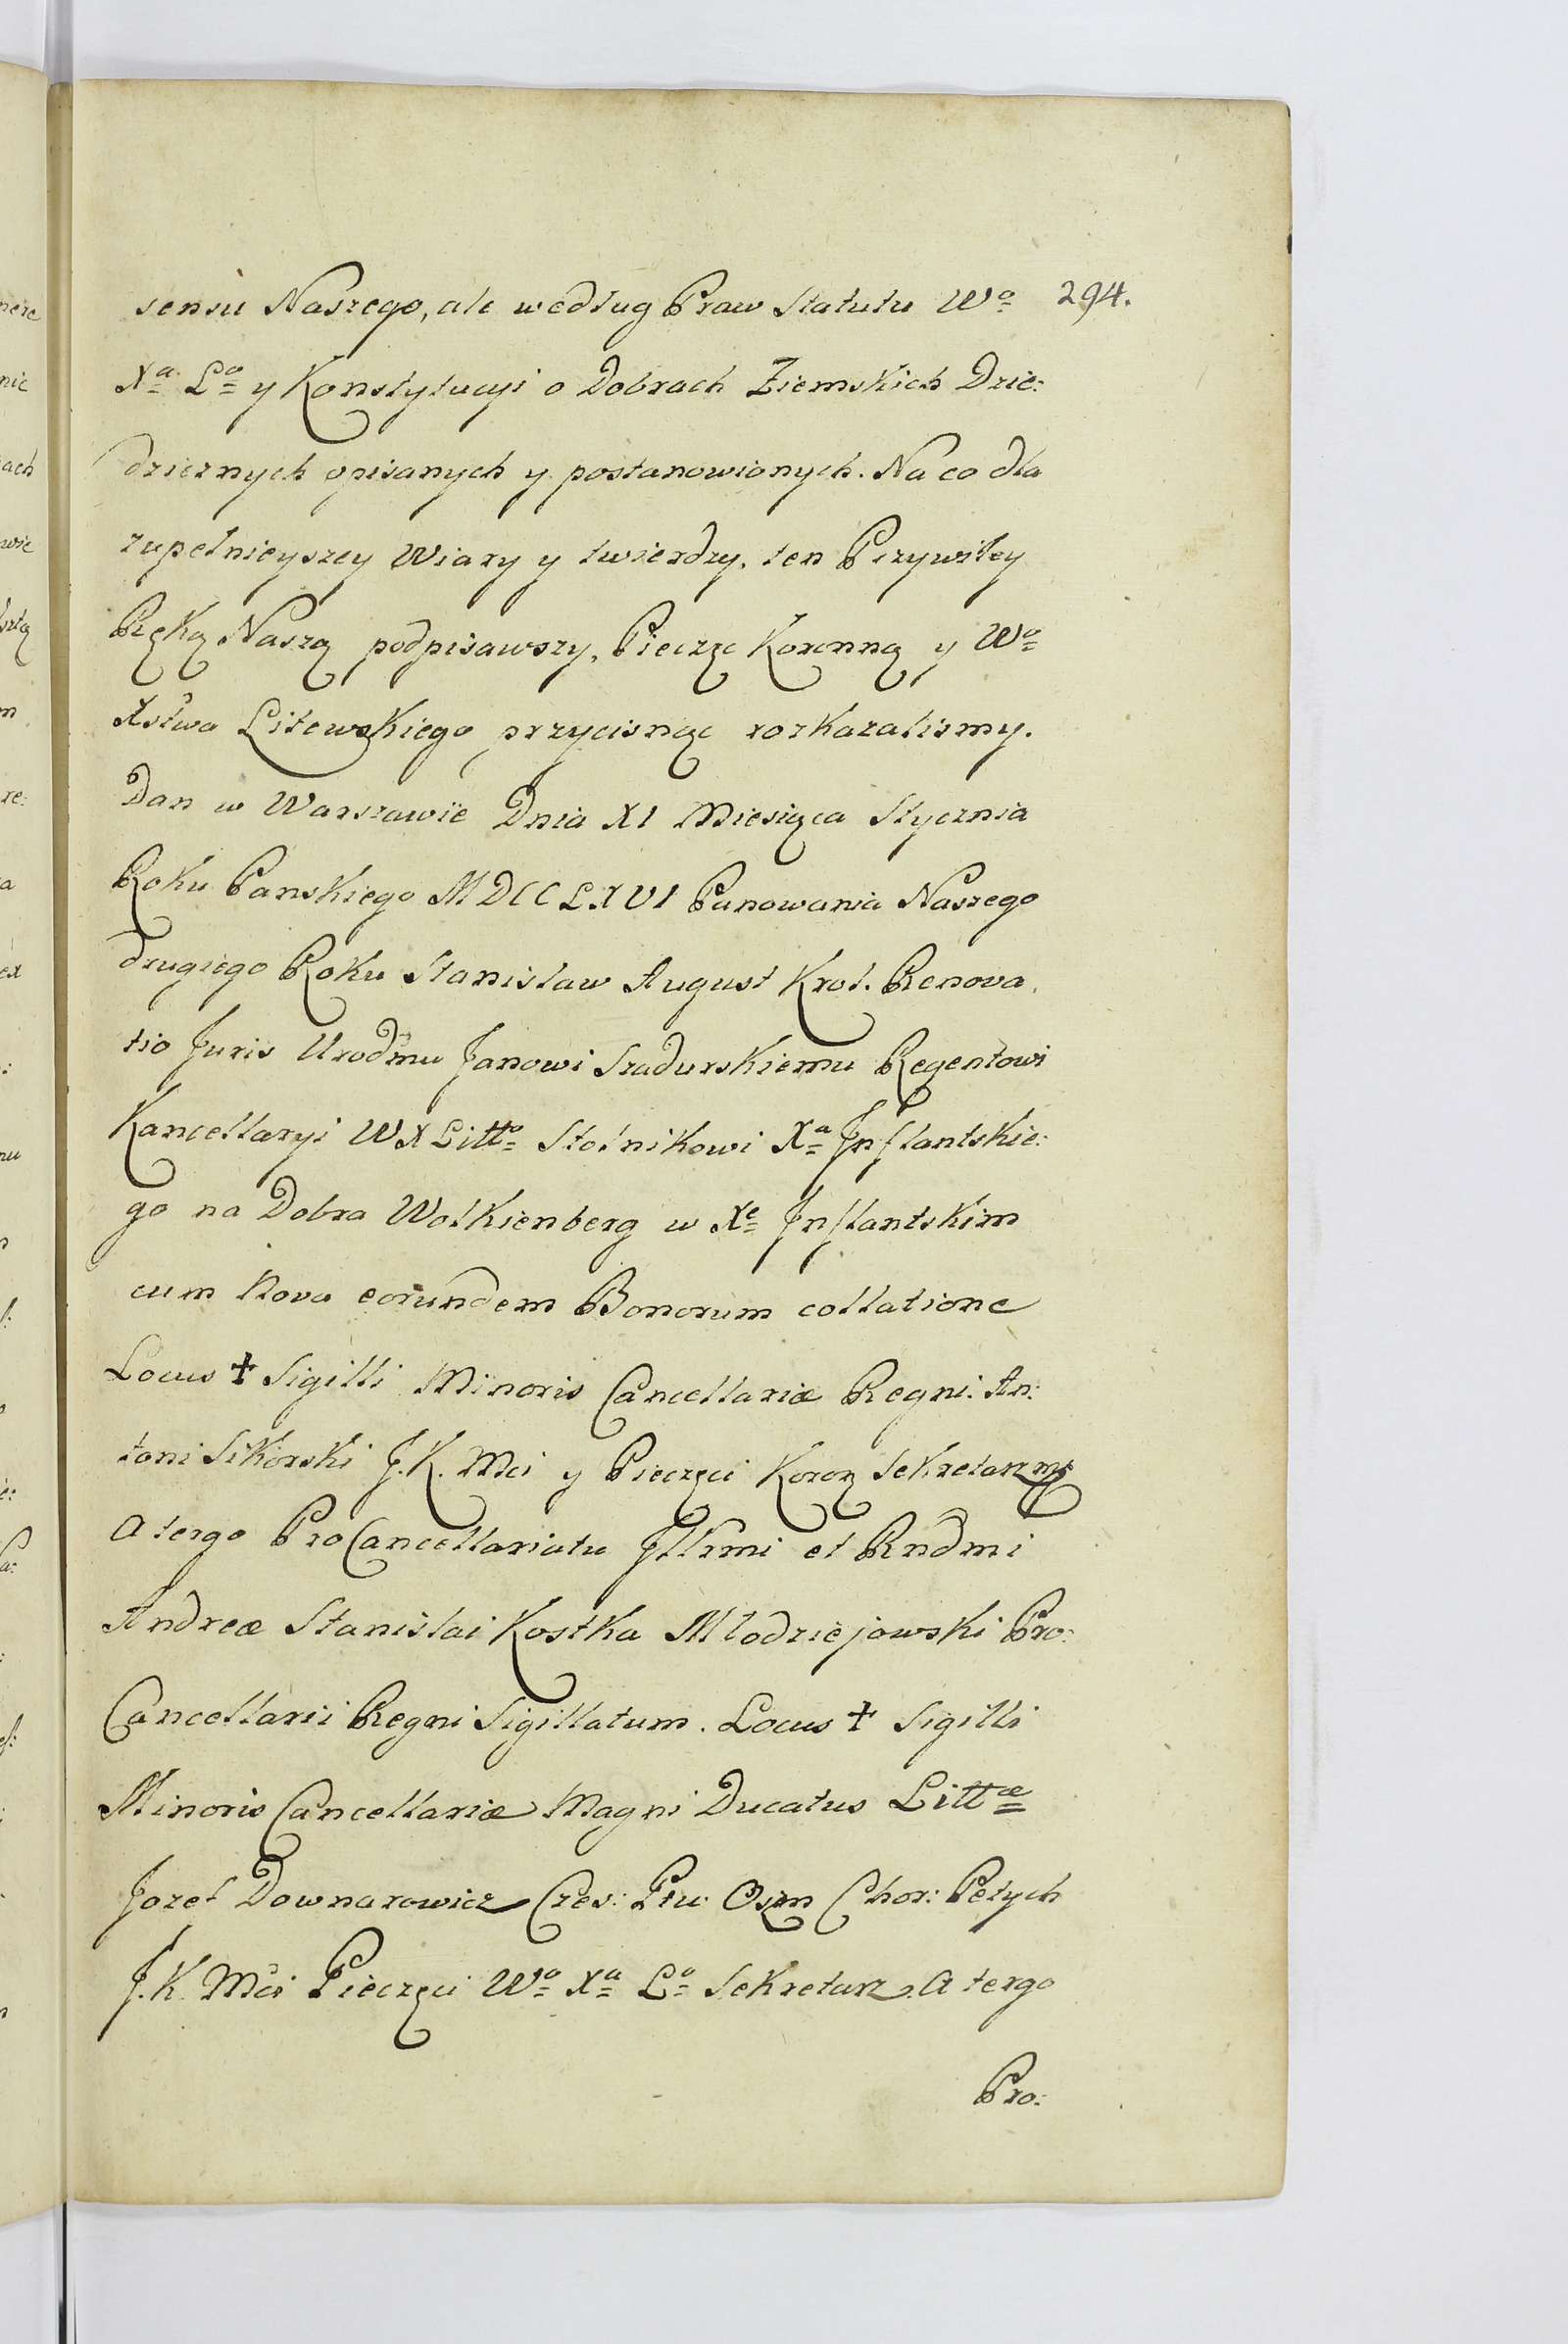 sensu Naszego, ale według Praw Statutu Wo 294.
Xa Lo y Konstytucyi o Dobrach Ziemskich Dzie:
dzicznych opisanych y postanowionych. Na co dla
zupełnieyszey Wiary y twierdzy, ten Przywiley
Ręką Naszą podpisawszy, Pieczęc Koronną y Wo
Xstwa Litewskiego przycisnąc rozkazalismy.
Dan w Warszawie Dnia XI Miesiąca Stycznia
Roku Panskiego MDCCLXVI Panowania Naszego
drugiego Roku Stanisław August Krol. Renova
tio Juris Urodmu Janowi Szadurskiemu Regentowi
Kancellaryi WXLitto Stolnikowi Xa Inflantskie:
go na Dobra Wolkienberg w Xe Inflantskim
cum Nova eorundem Bonorum collatione
Locus ✝ Sigilli Minoris Cancellariæ Regni. An:
toni Sikorski J.K. Mci y Pieczęci Koroą Sekretarz mp
A tergo ProCancellariatu Illrmi et Rndmi
Andreæ Stanislai Kostka Młodziejowski Pro:
Cancellarii Regni Sigillatum. Locus ✝ Sigilli
Minoris Cancellariæ Magni Ducatus Littæ
Jozef Downarowicz Czes: Ptu: Oszm Chor: Petych
J.K. Mci Pieczęci Wo Xa Lo Sekretarz. A tergo
Pro: